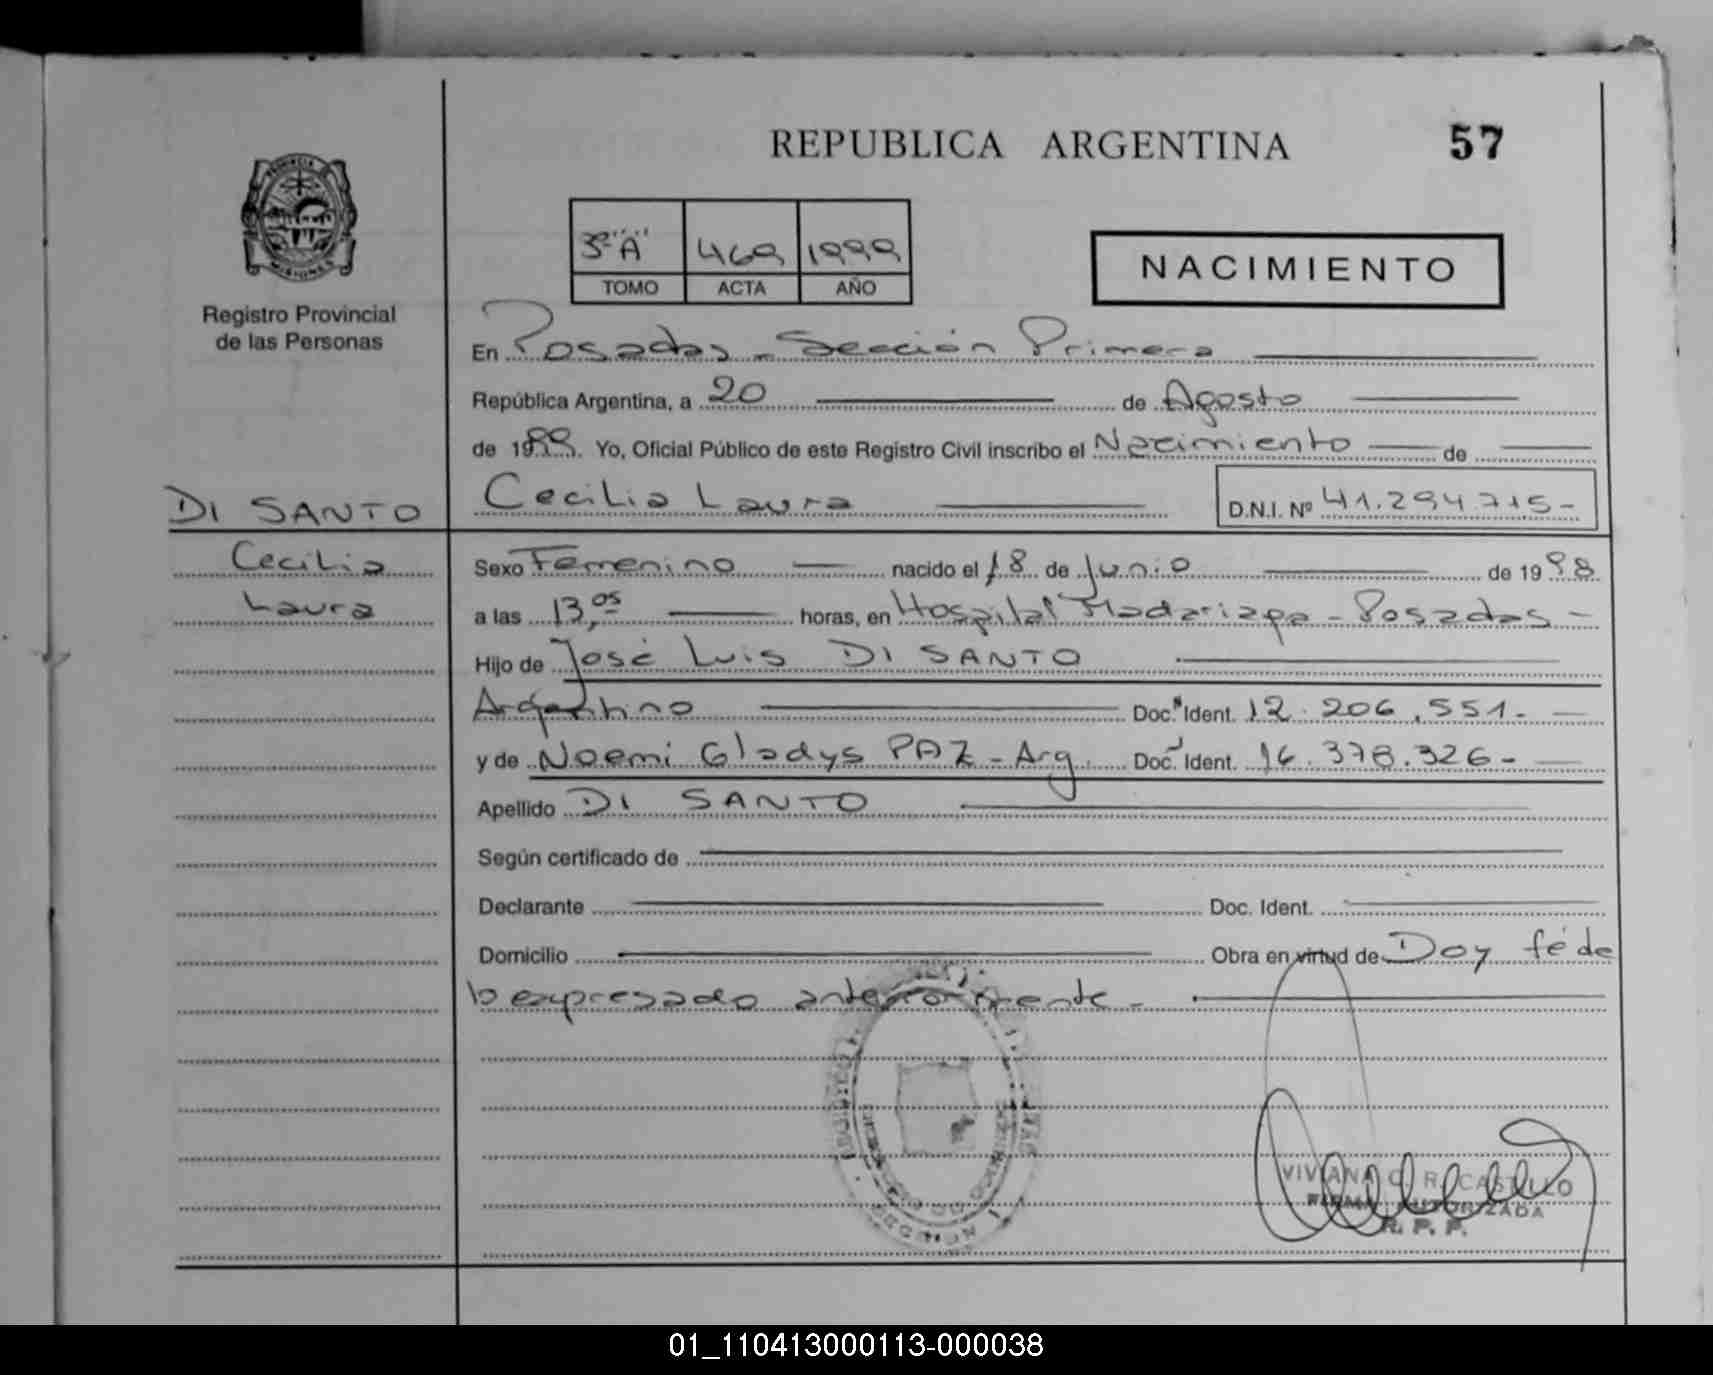 REPUBLICA ARGENTINA
57
PROVINCIA
MISIONES
Registro Provincial
de las Personas
3º "A" 469 1999
TOMO ACTA AÑO
NACIMIENTO
En Posadas - Sección Primera
República Argentina, a 20 de Agosto
de 1999. Yo, Oficial Público de este Registro Civil inscribo el Nacimiento de
DI SANTO
Cecilia Laura
D.N.I. Nº 41.294.715-
Cecilia
Laura
Sexo Femenino nacido el 18 de Junio de 1998
a las 13,05 horas, en Hospital Madariaga - Posadas -
Hijo de José Luis DI SANTO
Argentino Doc. Ident. 12.206.551.-
y de Noemi Gladys PAZ - Arg. Doc. Ident. 16.378.326-
Apellido DI SANTO
Según certificado de
Declarante Doc. Ident.
Domicilio Obra en virtud de Doy fé de
lo expresado anteriormente -
VIVIANA C. R. CASTILLO
FIRMA AUTORIZADA
R. P. P.
01_110413000113-000038